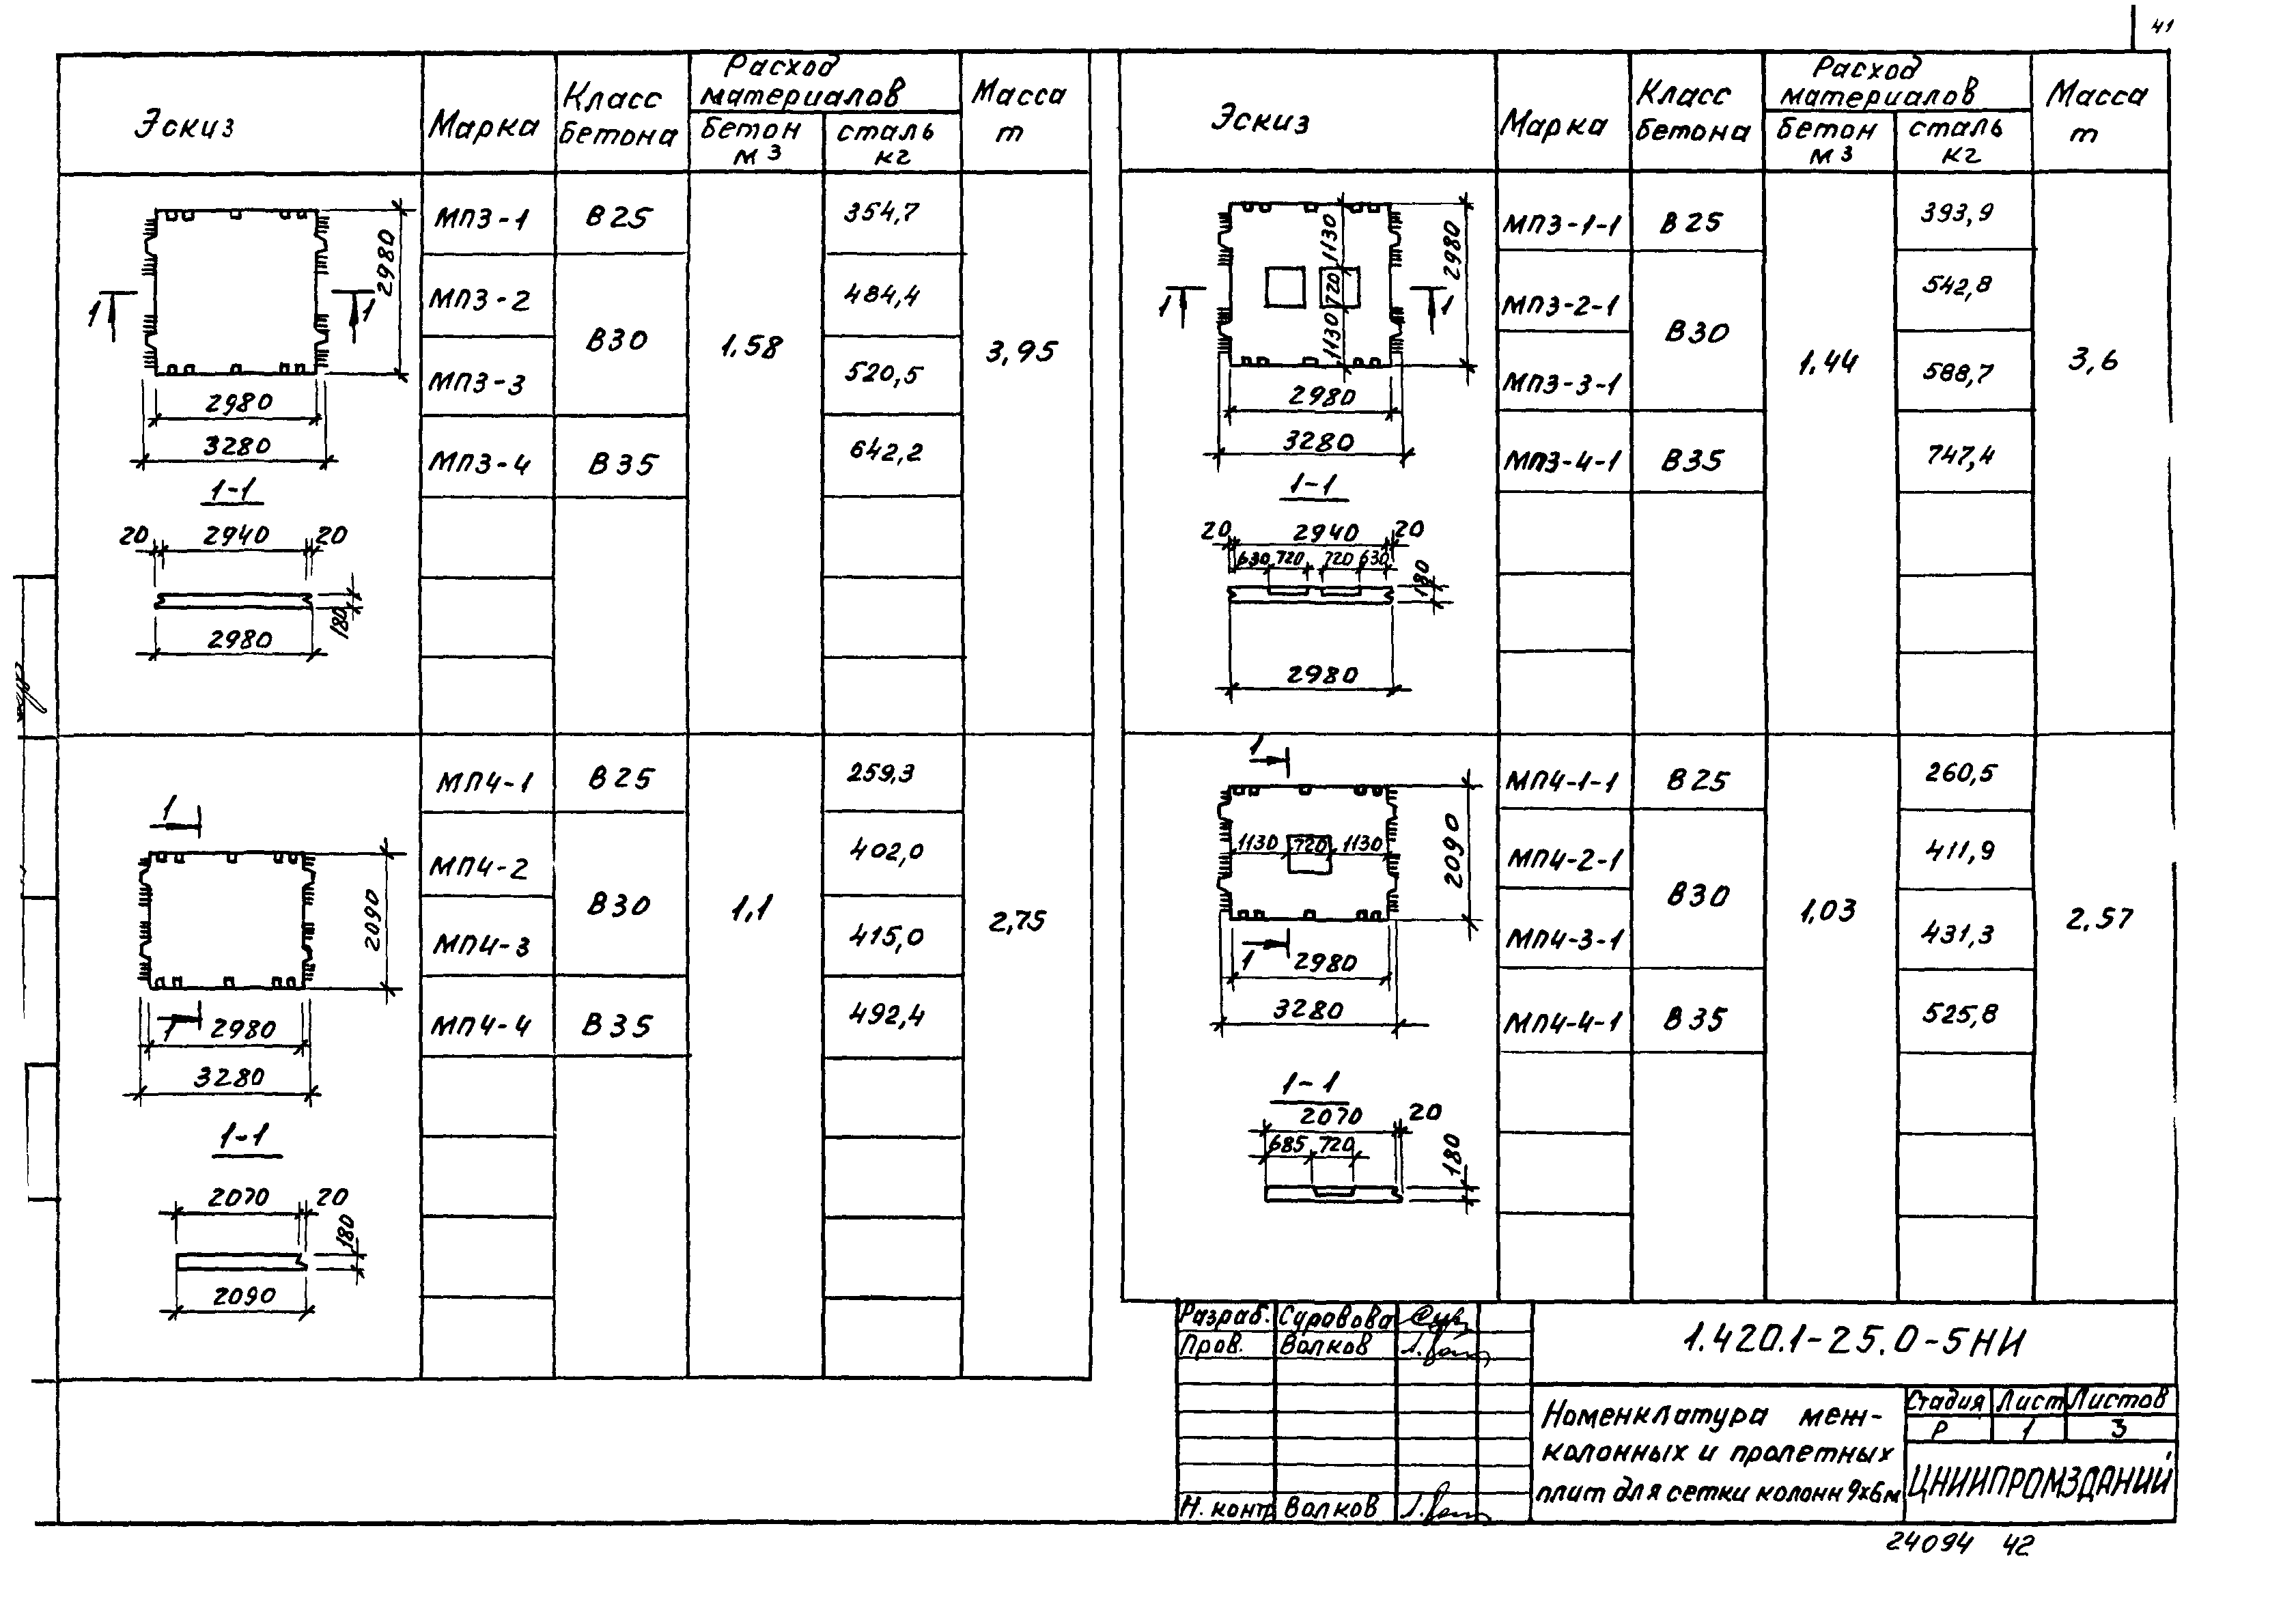 41
Эскиз
Марка
Класс
бетона
Расход
материалов
бетон
м3
сталь
кг
Масса
т
МП3-1
В25
354,7
МП3-2
484,4
В30
1,58
3,95
МП3-3
520,5
МП3-4
В35
642,2
2980
1
1
2980
3280
1-1
20
2940
20
180
2980
МП4-1
В25
259,3
МП4-2
402,0
В30
1,1
2,75
МП4-3
415,0
МП4-4
В35
492,4
1
2090
1
2980
3280
1-1
2070
20
180
2090
Эскиз
Марка
Класс
бетона
Расход
материалов
бетон
м3
сталь
кг
Масса
т
МП3-1-1
В25
393,9
МП3-2-1
542,8
В30
1,44
3,6
МП3-3-1
588,7
МП3-4-1
В35
747,4
1130
720
1130
2980
1
1
2980
3280
1-1
20
2940
20
630
720
720
630
180
2980
МП4-1-1
В25
260,5
МП4-2-1
411,9
В30
1,03
2,57
МП4-3-1
431,3
МП4-4-1
В35
525,8
1
1130
720
1130
2090
1
2980
3280
1-1
2070
20
685
720
180
Разраб. Суровова
Пров. Волков
Н. контр Волков
1.420.1-25.0-5НИ
Номенклатура меж-
колонных и пролетных
плит для сетки колонн 9х6м
Стадия Лист Листов
Р 1 3
ЦНИИПРОМЗДАНИЙ
24094 42